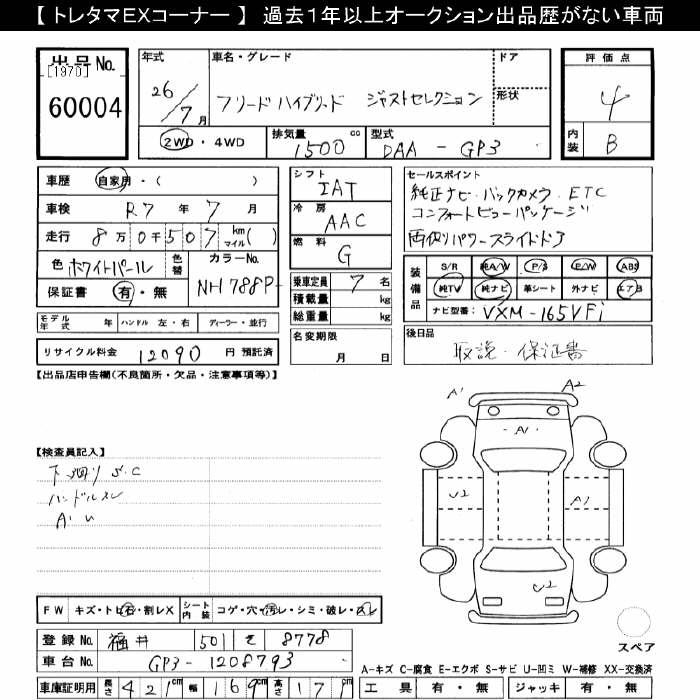 【 トレタマEXコーナー 】 過去１年以上オークション出品歴がない車両
出品 No.
[1970]
60004
年式 車名・グレード ドア
26/7月 フリードハイブリッド ジャストセレクション 形状
2WD・4WD 排気量 1500 cc 型式 DAA - GP3
評価点
4
内装 B
車歴 自家用・( )
車検 R7 年 7 月
走行 8万0千507 km マイル( )
色 ホワイトパール 色替 カラーNo. NH788P
保証書 有・無
シフト IAT
冷房 AAC
燃料 G
乗車定員 7 名
積載量 kg
総重量 kg
セールスポイント
純正ナビ・バックカメラ・ETC
コンフォートビューパッケージ
両側パワースライドドア
装備品 S/R 純A/W P/S P/W ABS
純TV 純ナビ 革シート 外ナビ エアB
ナビ型番: VXM-165VFi
モデル年式 年 ハンドル 左・右 ディーラー・並行
名変期限 月 日
後日品
取説・保証書
リサイクル料金 12090 円 預託済
【出品店申告欄(不良箇所・欠品・注意事項等)】
A1 A2
A1
U2 A1
U2
【検査員記入】
下廻りS.C
ハンドルスレ
A1 U
FW キズ・トビ石・割レX シート内装 コゲ・穴・汚レ・シミ・破レ・スレ
登録 No. 福井 501 そ 8778
車台 No. GP3-1208793
車庫証明用 長さ 421cm 幅 169cm 高さ 171cm
スペア
A-キズ C-腐食 E-エクボ S-サビ U-凹ミ W-補修 XX-交換済
工具 有・無 ジャッキ 有・無